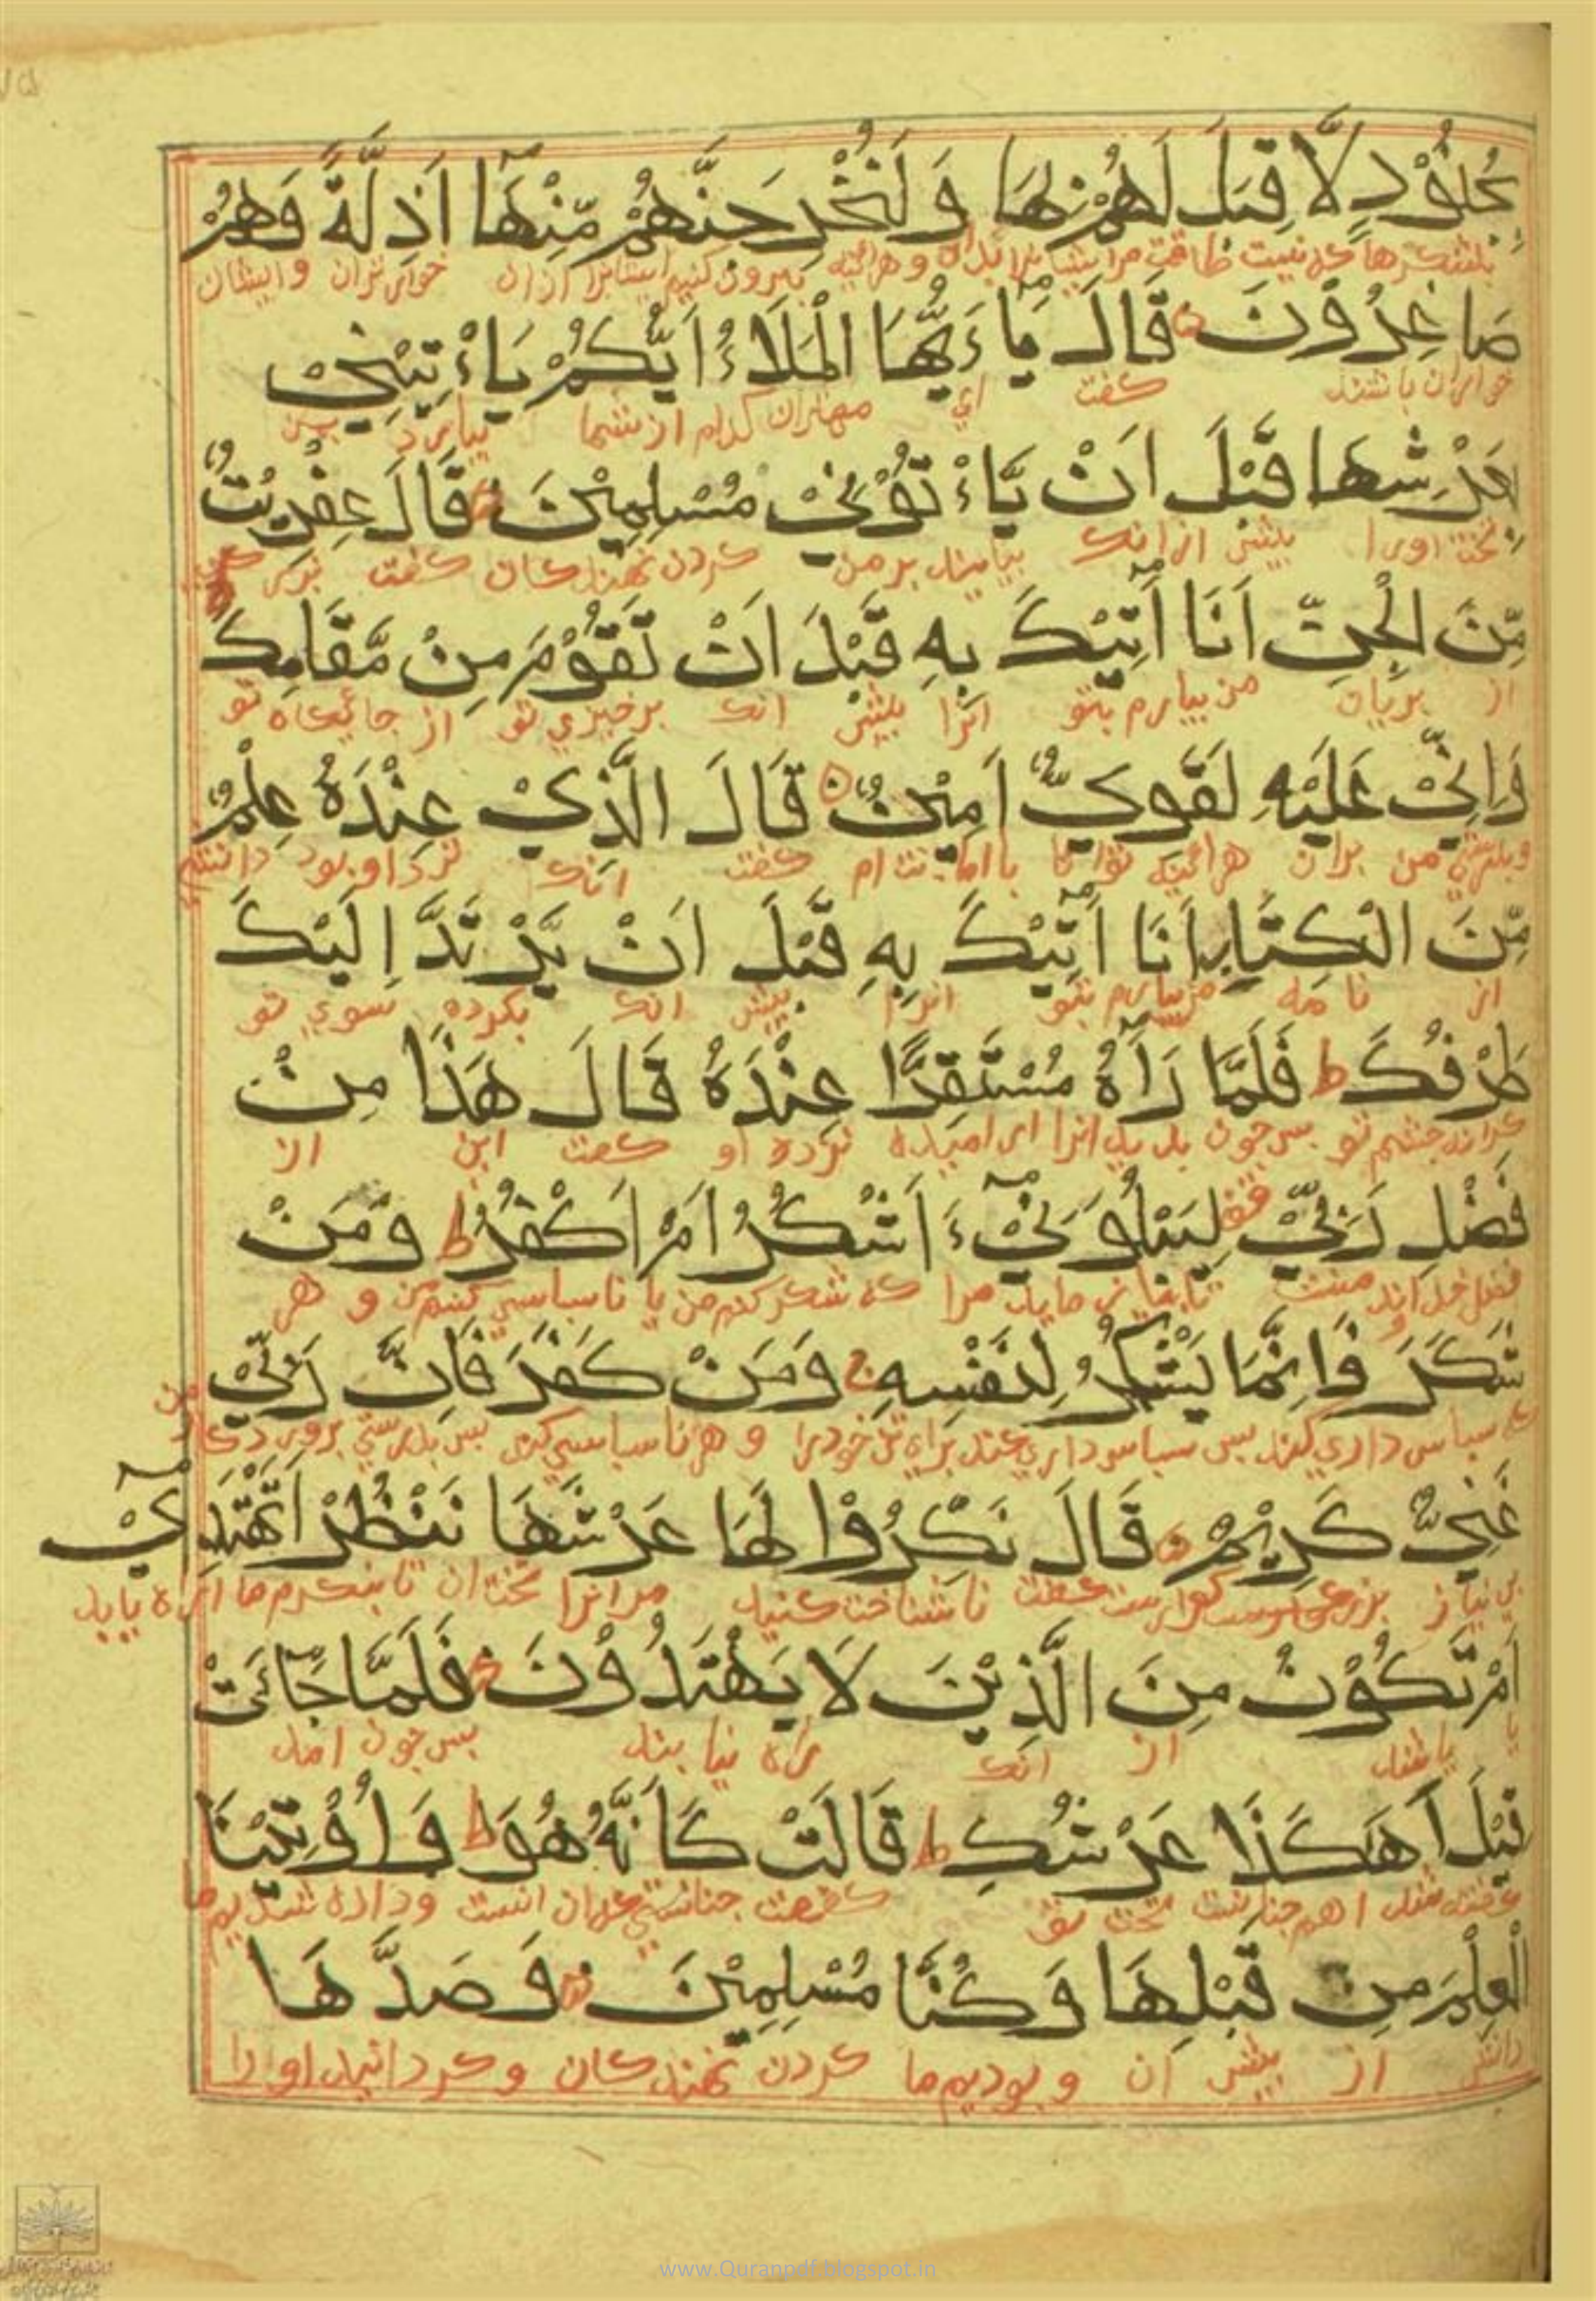 بِجُنُوْدٍ لَّا قِبَلَ لَهُمْ بِهَا وَ لَنُخْرِجَنَّهُمْ مِّنْهَآ اَذِلَّةً وَهُمْ
بلشکرها که نیست طاقت مر ایشانرا بدان و هرآینه بیرون کنیم ایشانرا ازان خوارتران و ایشان
صَاغِرُوْنَ قَالَ يَآءَيُّهَا الْمَلَاءُ اَيُّكُمْ يَاءْتِيْنِيْ
خواران باشند کفت ای مهتران کدام از شما بیارد بمن
بِعَرْشِهَا قَبْلَ اَنْ يَّاءْتُوْنِيْ مُسْلِمِيْنَ قَالَ عِفْرِيْتٌ
تخت اورا بیش ازانک بیایند بر من کردن نهندکان کفت
مِّنَ الْجِنِّ اَنَا اٰتِيْكَ بِهِ قَبْلَ اَنْ تَقُوْمَ مِنْ مَّقَامِكَ
از پریان من بیارم بتو انرا بیش انک برخیزی تو از جائیکاه تو
وَاِنِّيْ عَلَيْهِ لَقَوِيٌّ اَمِيْنٌ قَالَ الَّذِيْ عِنْدَهُ عِلْمٌ
وبدرستی من بران هرآینه توانا باامانت ام کفت انک نزد او بود دانش
مِّنَ الْكِتَابِ اَنَا اٰتِيْكَ بِهِ قَبْلَ اَنْ يَّرْتَدَّ اِلَيْكَ
از نامه من بیارم بتو انرا بیش انک بکردد سوی تو
طَرْفُكَ ط فَلَمَّا رَاٰهُ مُسْتَقِرًّا عِنْدَهُ قَالَ هَذَا مِنْ
جشم تو بس جون بدید انرا ارامیده نزد او کفت این از
فَضْلِ رَبِّيْ قف لِيَبْلُوَنِيْ ءَ اَشْكُرُ اَمْ اَكْفُرُ ط وَمَنْ
فضل خداوند منست مرا که شکر کنم من یا ناسپاسی کنم من و هر
شَكَرَ فَاِنَّمَا يَشْكُرُ لِنَفْسِهِ ج وَمَنْ كَفَرَ فَاِنَّ رَبِّيْ
که سپاس داری کند بس سپاس داری کند برای تن خودرا و هر ناسپاسی کند بس بدرستی پروردکار من
غَنِيٌّ كَرِيْمٌ قَالَ نَكِّرُوْا لَهَا عَرْشَهَا نَنْظُرْ اَتَهْتَدِيْ
بی نیاز کفت ناشناخت کنید مر انرا تخت ان تا بنکرم ما ایا راه یابد
اَمْ تَكُوْنُ مِنَ الَّذِيْنَ لَا يَهْتَدُوْنَ فَلَمَّا جَآئَتْ
یا باشد از انک راه نیابند بس جون امد
قِيْلَ اَهَكَذَا عَرْشُكِ ط قَالَتْ كَاَنَّهُ هُوَ ط وَاُوْتِيْنَا
کفته شد اهمجنانست تخت تو کفت همان انست و داده شدیم ما
الْعِلْمَ مِنْ قَبْلِهَا وَكُنَّا مُسْلِمِيْنَ فَصَدَّهَا
دانش از بیش ان و بودیم ما کردن نهندکان و کردانید او را
www.Quranpdf.blogspot.in